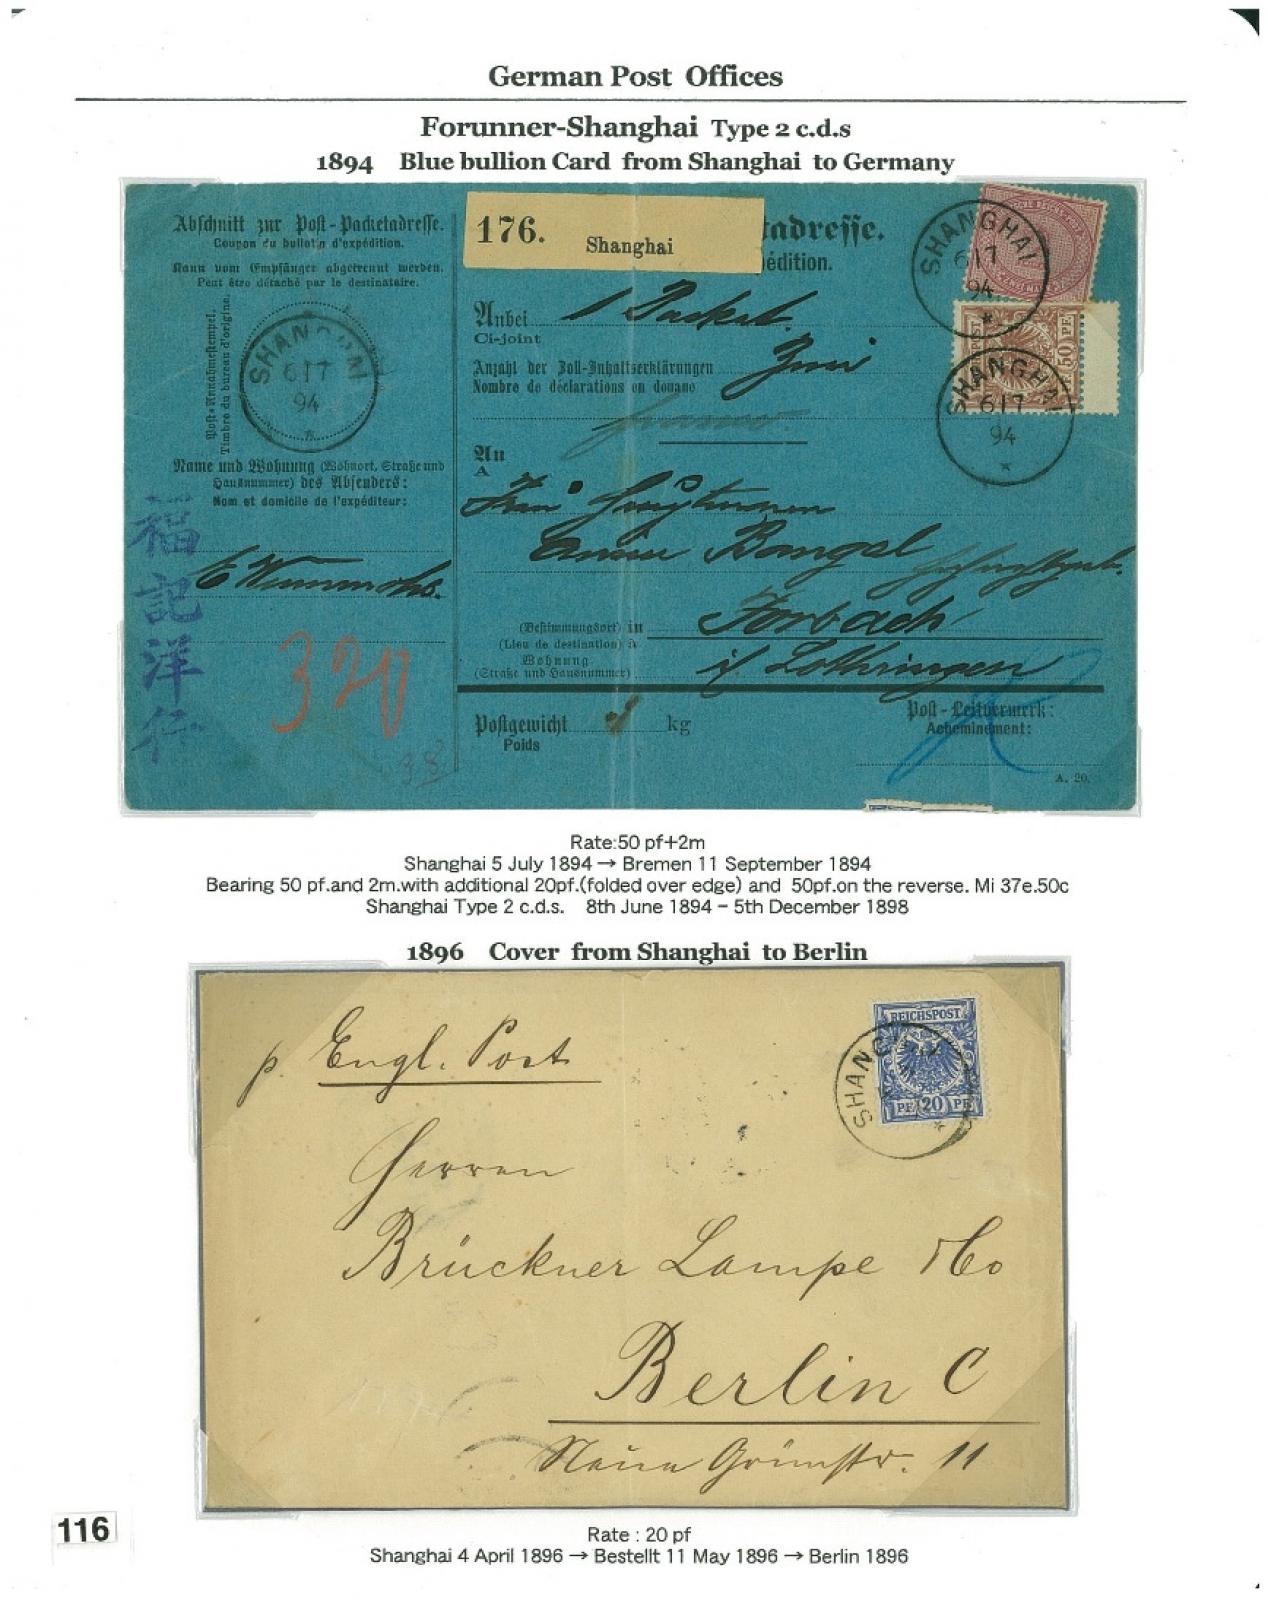 German Post Offices
Forunner-Shanghai Type 2 c.d.s
1894 Blue bullion Card from Shanghai to Germany
Abschnitt zur Post-Packetadresse.
Coupon du bulletin d'expédition.
Kann vom Empfänger abgetrennt werden.
Peut être détaché par le destinataire.
Post-Annahmestempel.
Timbre du bureau d'origine.
SHANGHAI
6/7
94
Name und Wohnung (Wohnort, Straße und
Hausnummer) des Absenders:
Nom et domicile de l'expéditeur:
福記洋行
320
38
176.
Shanghai
tadresse.
édition.
SHANGHAI
6/7
94
50 PF
SHANGHAI
6/7
94
Anbei 1 Packet.
Ci-joint
Anzahl der Zoll-Inhaltserklärungen
Nombre de déclarations en douane
An
A
Frau
Bangel
(Bestimmungsort) in Forbach
(Lieu de destination) à
Wohnung i/ Lothringen
(Straße und Hausnummer)
Postgewicht kg
Poids
Post-Leitvermerk:
Acheminement:
A. 20.
Rate:50 pf+2m
Shanghai 5 July 1894 → Bremen 11 September 1894
Bearing 50 pf.and 2m.with additional 20pf.(folded over edge) and 50pf.on the reverse. Mi 37e.50c
Shanghai Type 2 c.d.s. 8th June 1894 - 5th December 1898
1896 Cover from Shanghai to Berlin
p. Engl. Post
REICHSPOST
PF 20 PF
SHANG
Herren
Brückner Lampe & Co
Berlin C
Neue Grünstr. 11
116
Rate : 20 pf
Shanghai 4 April 1896 → Bestellt 11 May 1896 → Berlin 1896